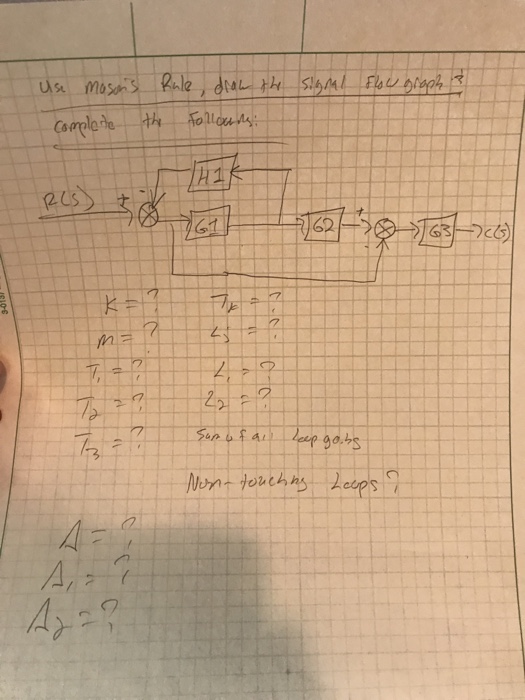 Use Mason's Rule, draw the signal flow graph &
complete the following:
H1
R(s) + -
G1 G2 + - G3 C(s)
K = ? Tk = ?
m = ? Lj = ?
T1 = ? L1 = ?
T2 = ? L2 = ?
T3 = ? Sum of all loop gains
Non-touching Loops?
Δ = ?
Δ1 = ?
Δ2 = ?